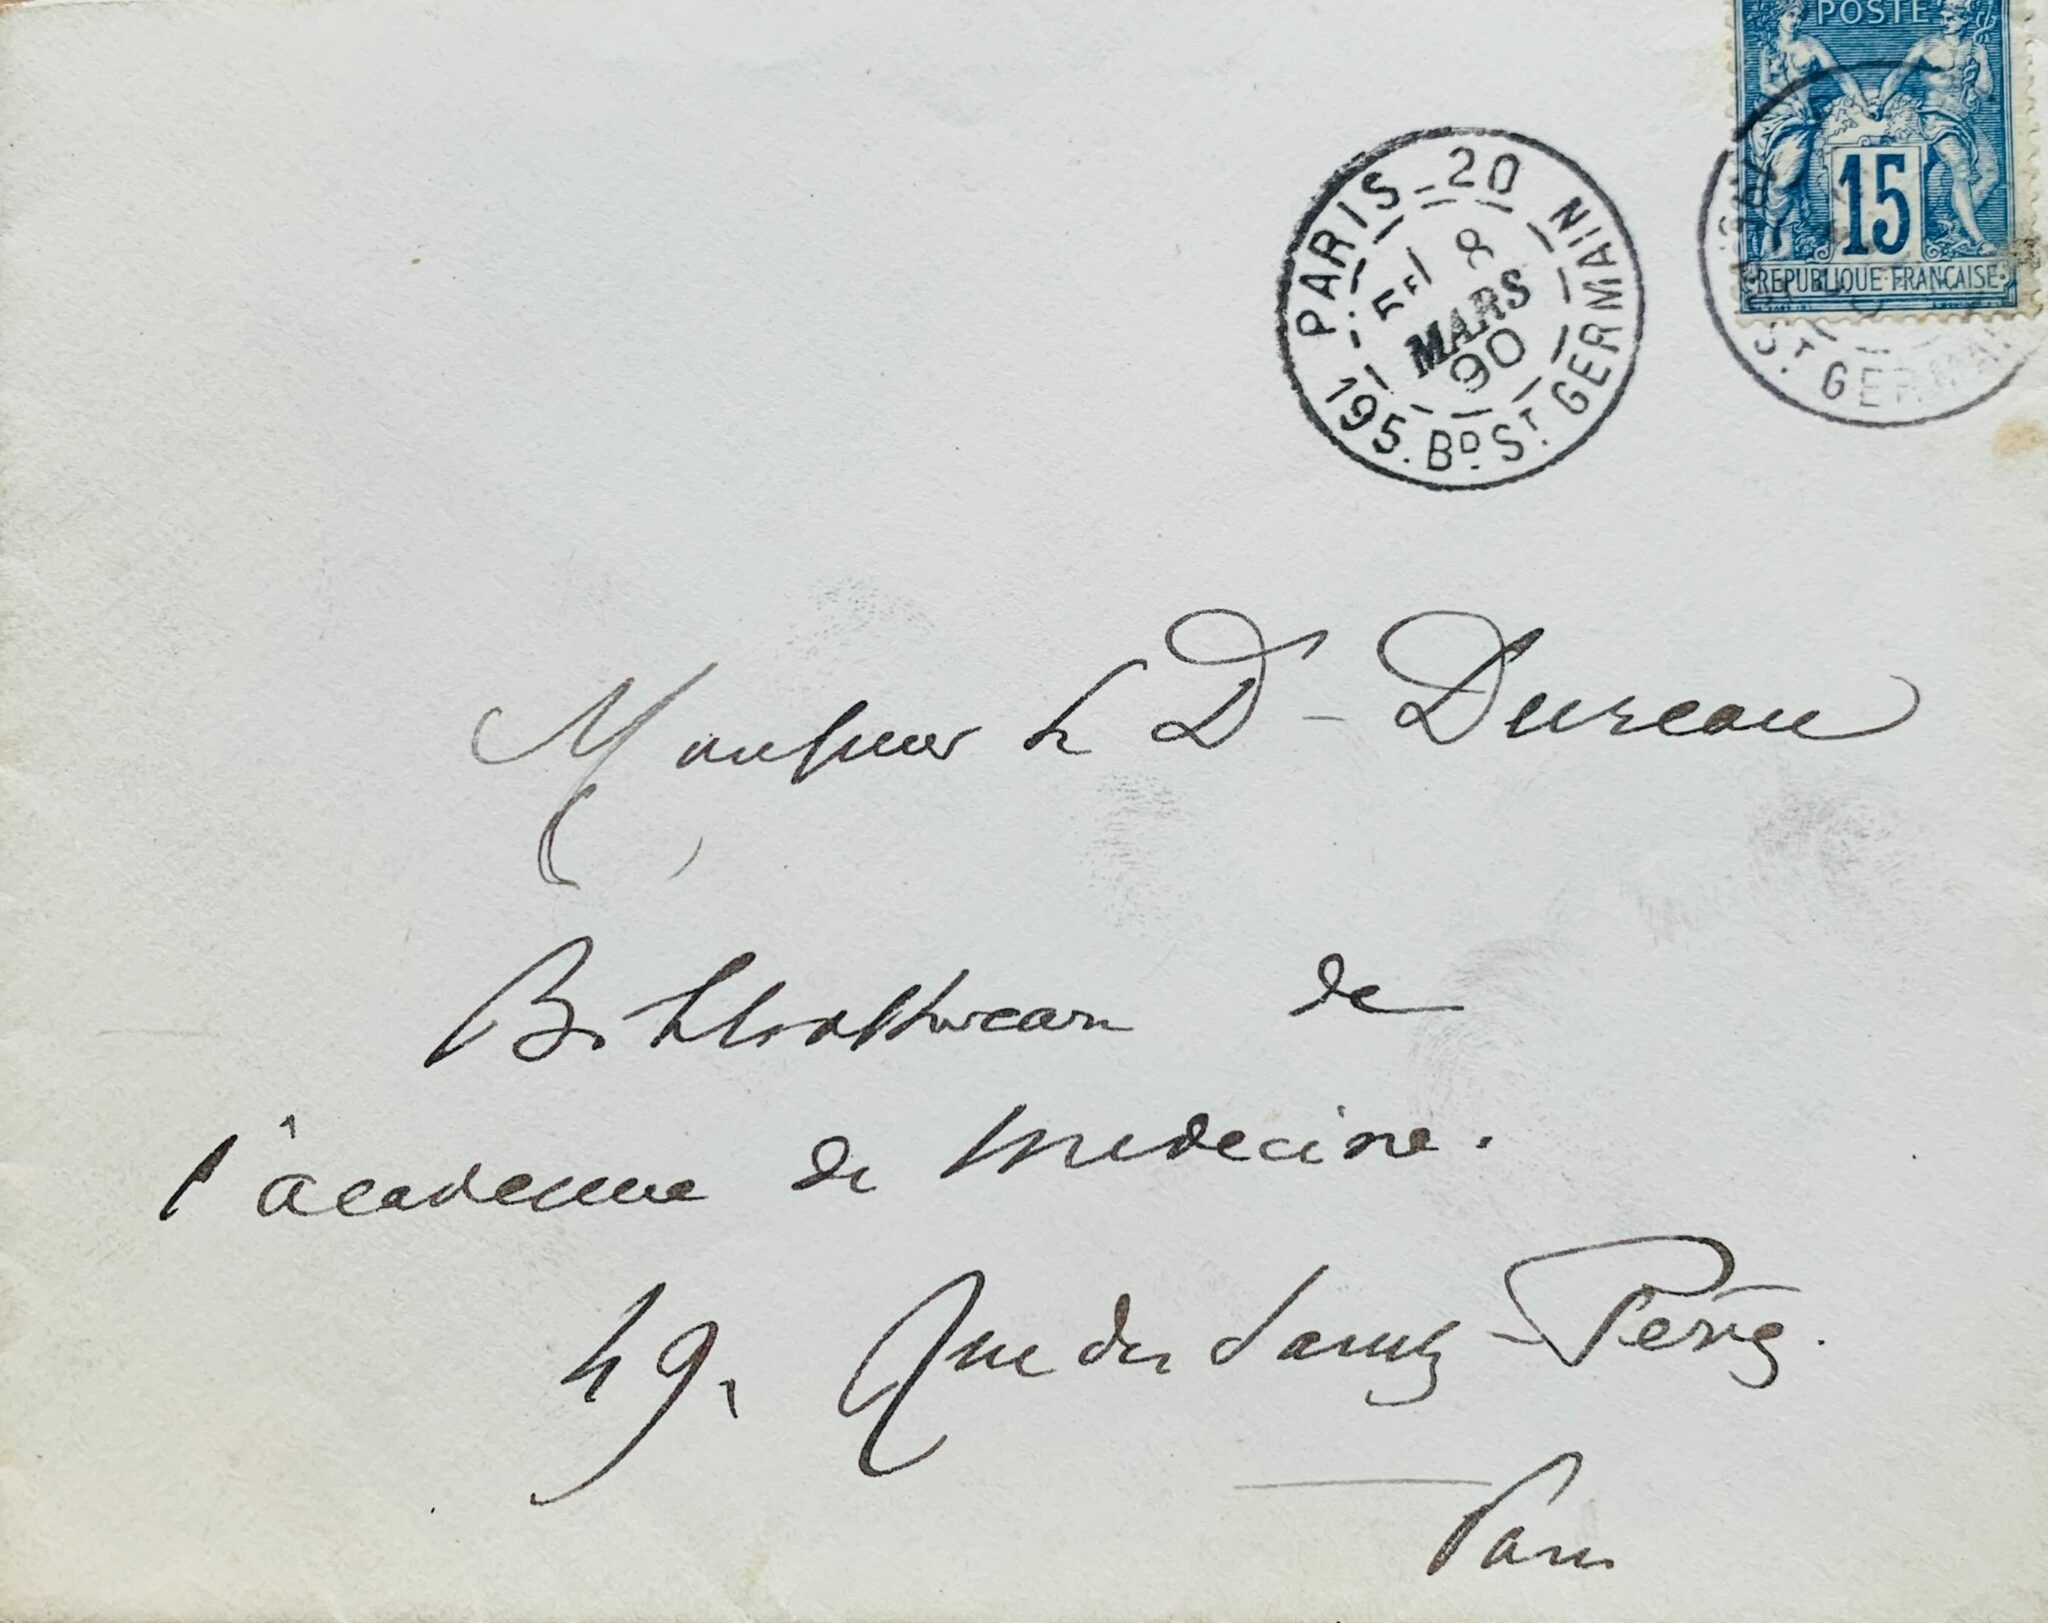 POSTE
15
REPUBLIQUE FRANÇAISE
PARIS_20
5E/ 8
MARS
90
195. Bᴅ Sᵀ. GERMAIN
Sᵀ GERMAIN
Monsieur le Dr Dureau
Bibliothécaire de
l'académie de médecine.
49, Rue des Saints-Pères.
Paris